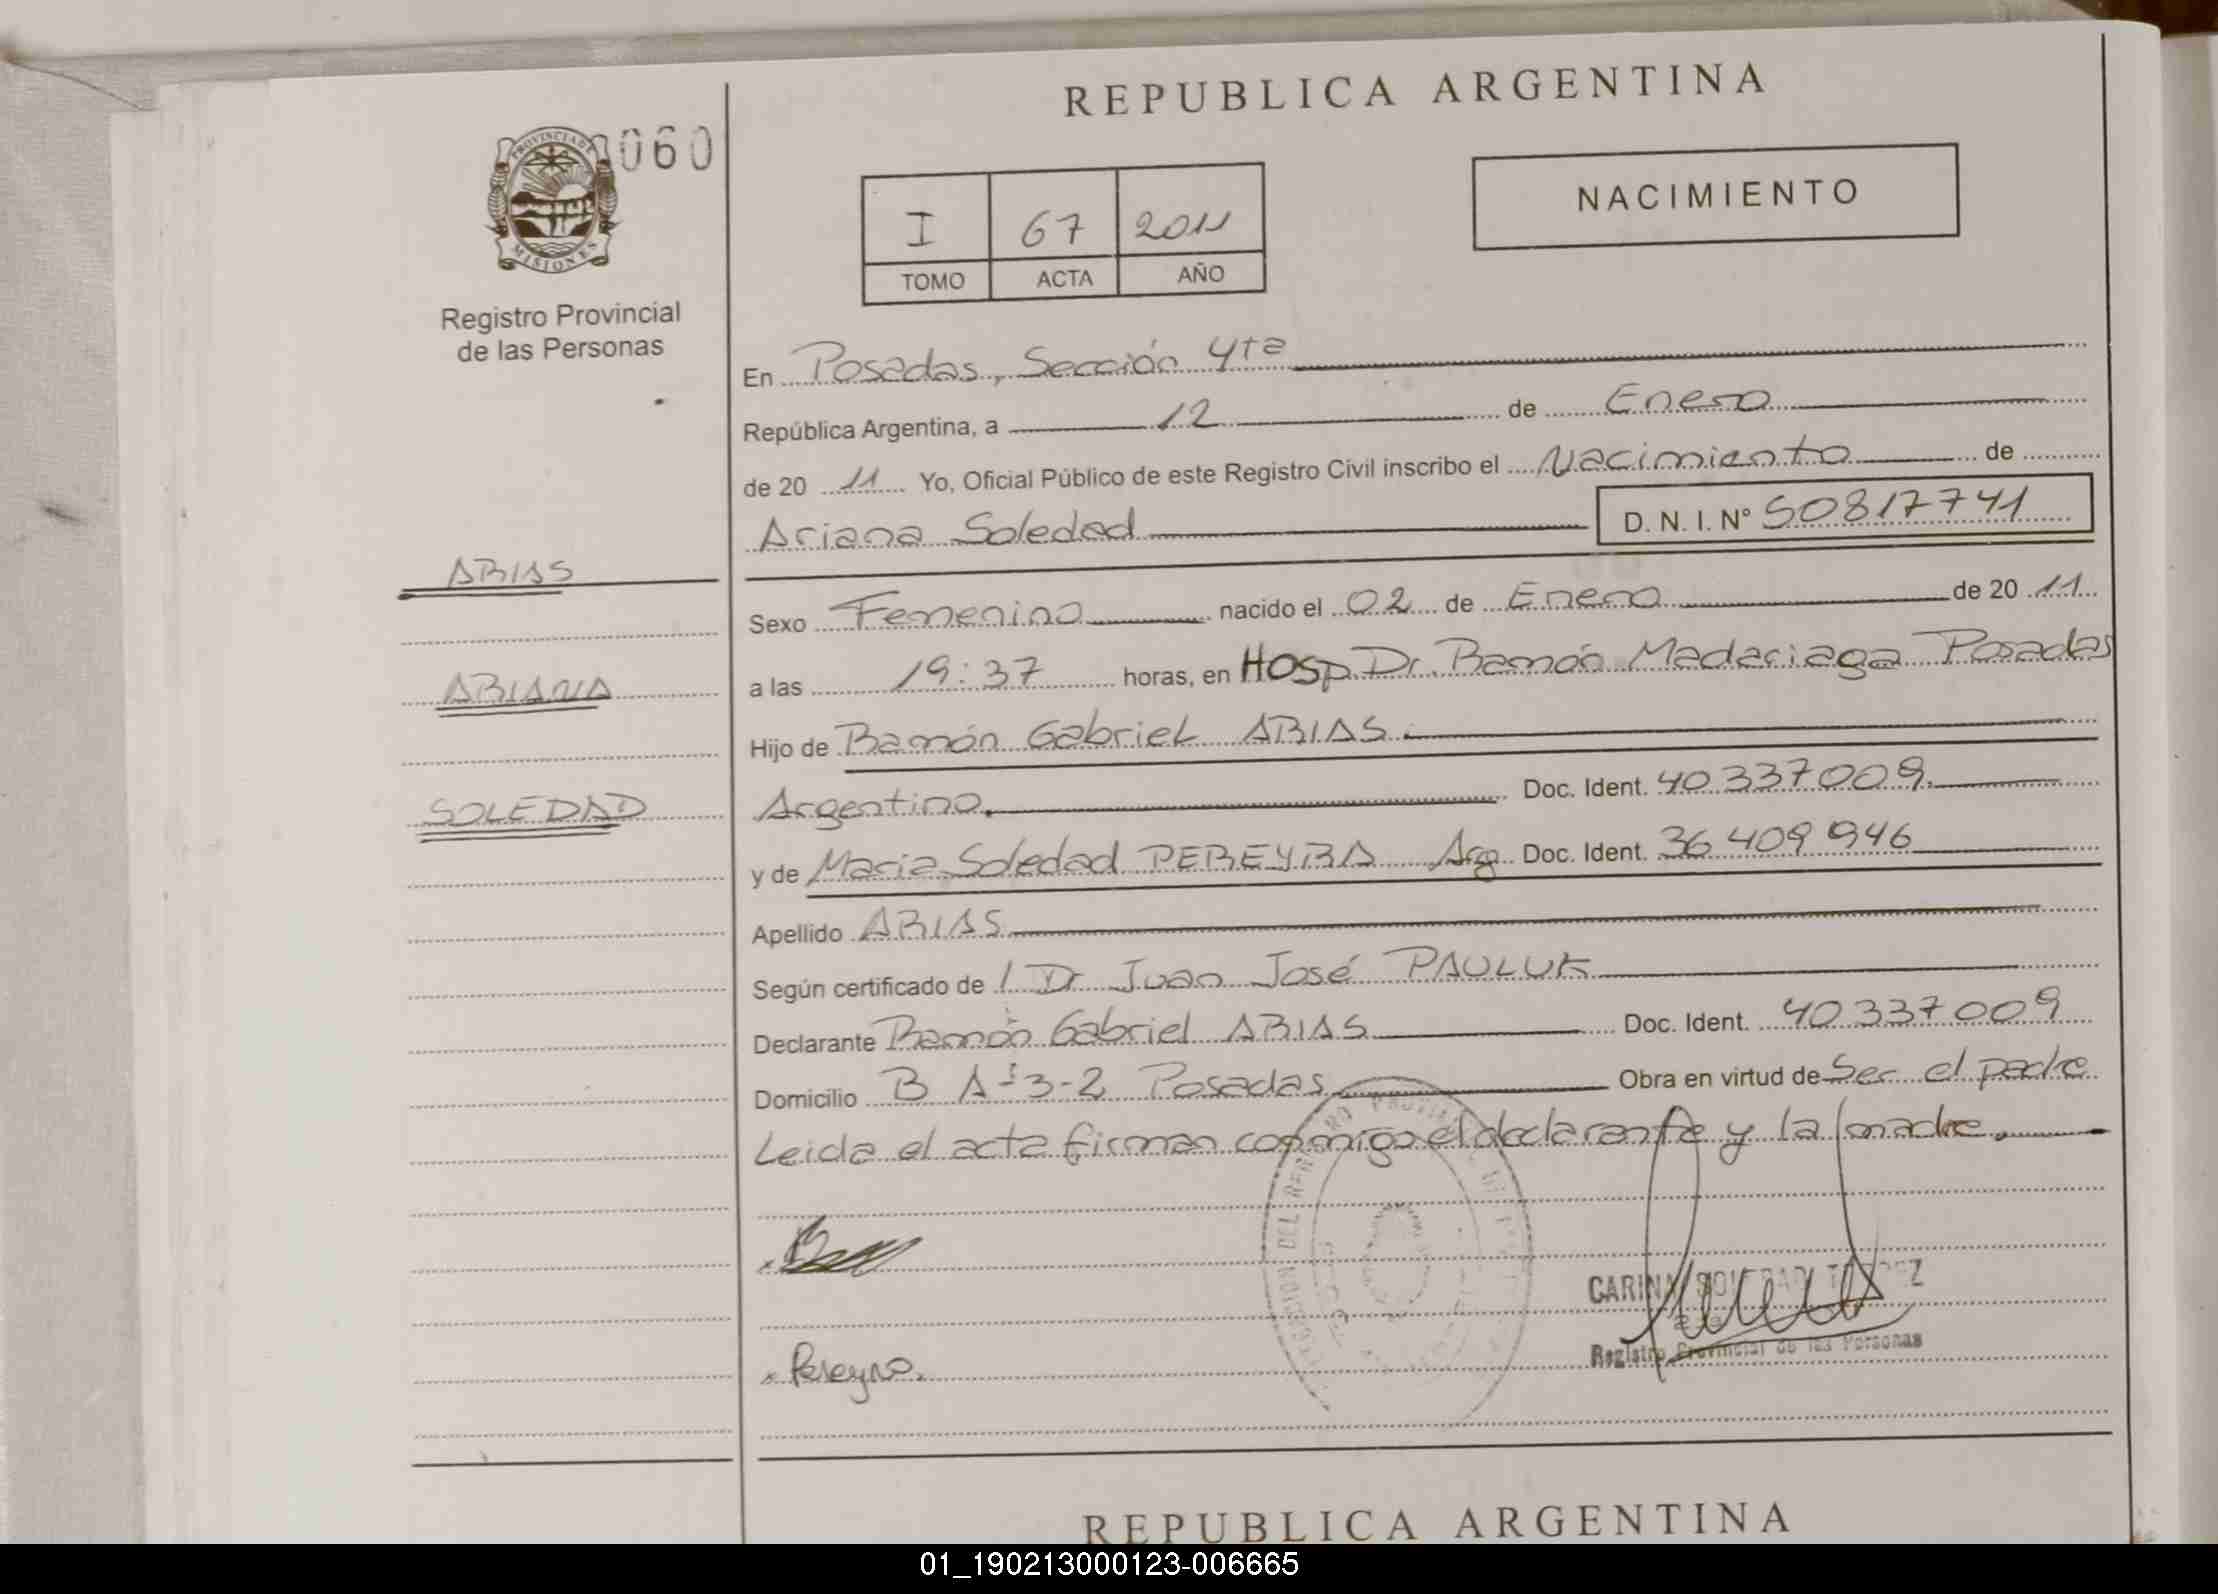 REPUBLICA ARGENTINA
060
PROVINCIA DE
MISIONES
Registro Provincial
de las Personas
NACIMIENTO
I 67 2011
TOMO ACTA AÑO
En Posadas, Sección 4ta
República Argentina, a 12 de Enero
de 20 11 Yo, Oficial Público de este Registro Civil inscribo el Nacimiento de
Ariana Soledad D. N. I. Nº 50817741
ARIAS
ARIANA
SOLEDAD
Sexo Femenino nacido el 02 de Enero de 20 11
a las 19:37 horas, en Hosp. Dr. Ramón Madariaga Posadas
Hijo de Ramón Gabriel ARIAS
Argentino. Doc. Ident. 40337009
y de Maria Soledad PEREYRA Arg Doc. Ident. 36409946
Apellido ARIAS
Según certificado de l Dr Juan José PAULUK
Declarante Ramón Gabriel ARIAS Doc. Ident. 40337009
Domicilio B A-3-2 Posadas Obra en virtud de Ser el padre
Leida el acta firman conmigo el declarante y la madre.
CARINA SOLEDAD
Registro Provincial de las Personas
Pereyra.
REPUBLICA ARGENTINA
01_190213000123-006665